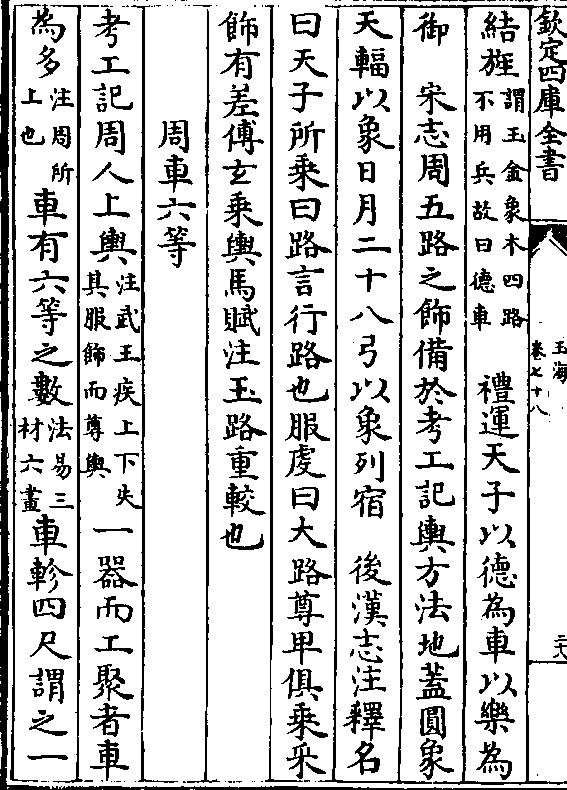 欽定四庫全書
玉海
卷七十八
結旌謂玉金象木四路不用兵故曰德車　禮運天子以德為車以樂為
御　宋志周五路之飾備於考工記輿方法地蓋圓象
天輻以象日月二十八弓以象列宿　後漢志注釋名
曰天子所乘曰路言行路也服虔曰大路尊卑俱乘采
飾有差傅玄乘輿馬賦注玉路重較也
周車六等
考工記周人上輿注武王疾上下失其服飾而尊輿一器而工聚者車
為多注周所上也車有六等之數法易三材六畫車軫四尺謂之一